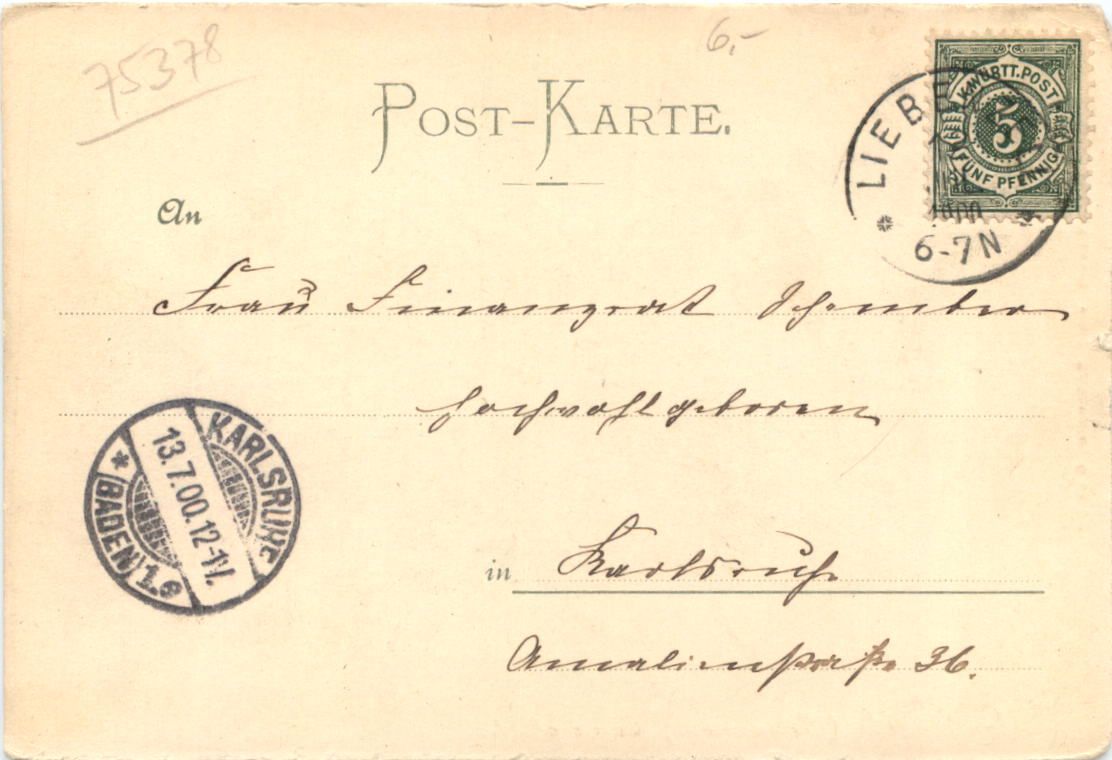 75378
6,-
POST-KARTE.
K.WÜRTT.POST
5
FÜNF PFENNIG
LIEBE
1900
6-7N
An
Frau Finanzrat Schember
Hochwohlgeboren
KARLSRUHE
13.7.00.12-1V.
(BADEN) 1.e
in Karlsruhe
Amalienstraße 36.